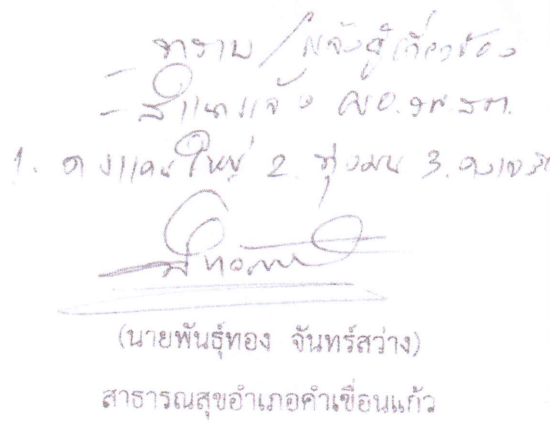 - ทราบ / แจ้งผู้เกี่ยวข้อง
- สำเนาแจ้ง ผอ.รพ.สต.
1. ดงแคนใหญ่ 2. ทุ่งมน 3. ดงเจริญ
(นายพันธุ์ทอง จันทร์สว่าง)
สาธารณสุขอำเภอคำเขื่อนแก้ว